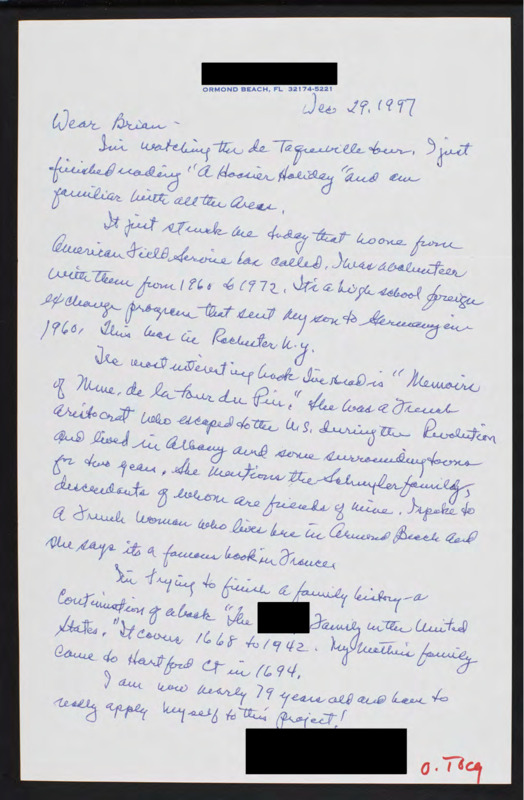 ORMOND BEACH, FL 32174-5221
Dec 29, 1997
Dear Brian -
I'm watching the de Toqueville tour. I just
finished reading "A Hoosier Holiday" and am
familiar with all the areas.
It just struck me today that no one from
American Field Service has called. I was a volunteer
with them from 1960 to 1972. It's a high school foreign
exchange program that sent my son to Germany in
1960. This was in Rochester N.Y.
The most interesting book I've read is "Memoirs
of Mme. de la Tour du Pin." She was a French
aristocrat who escaped to the U.S. during the Revolution
and lived in Albany and some surrounding towns
for two years. She mentions the Schuyler family,
descendants of whom are friends of mine. I spoke to
a French woman who lives here in Ormond Beach and
she says its a famous book in France.
I'm trying to finish a family history - a
continuation of a book "The Family in the United
States." It covers 1668 to 1942. My mother's family
came to Hartford Ct in 1694.
I am now nearly 79 years old and have to
really apply myself to this project!
O. Tocq